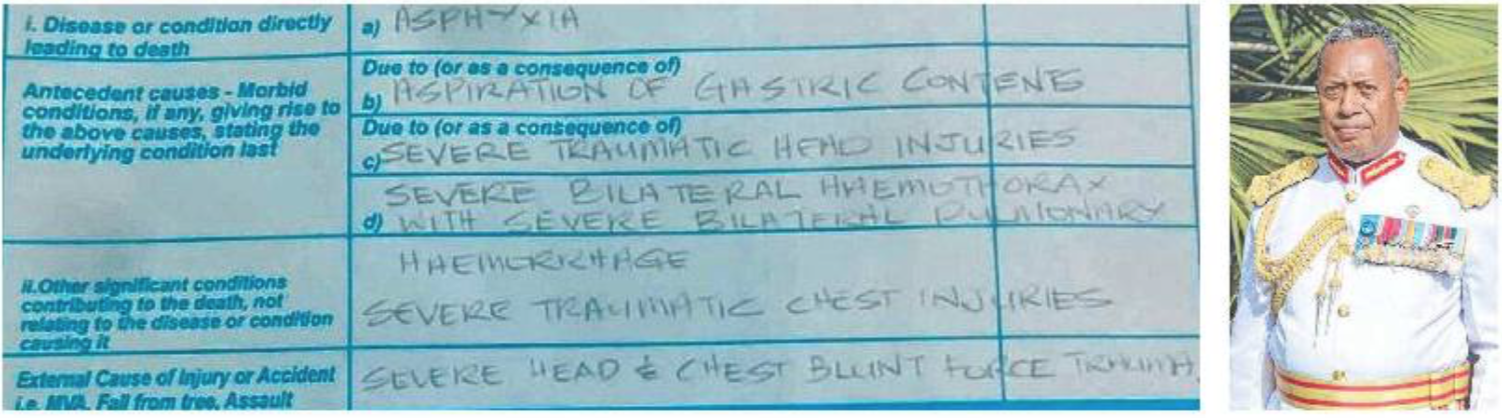 i. Disease or condition directly
leading to death
a) ASPHYXIA
Antecedent causes - Morbid
conditions, if any, giving rise to
the above causes, stating the
underlying condition last
Due to (or as a consequence of)
b) ASPIRATION OF GASTRIC CONTENTS
Due to (or as a consequence of)
c) SEVERE TRAUMATIC HEAD INJURIES
SEVERE BILATERAL HAEMOTHORAX
d) WITH SEVERE BILATERAL PULMONARY
HAEMORRHAGE
ii.Other significant conditions
contributing to the death, not
relating to the disease or condition
causing it
SEVERE TRAUMATIC CHEST INJURIES
External Cause of Injury or Accident
i.e. MVA, Fall from tree, Assault
SEVERE HEAD & CHEST BLUNT FORCE TRAUMA.